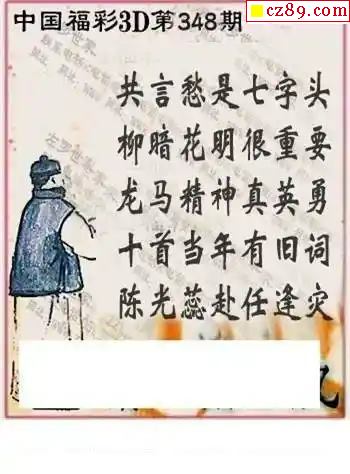 cz89.com
中国福彩3D第348期
共言愁是七字头
柳暗花明很重要
龙马精神真英勇
十首当年有旧词
陈光蕊赴任逢灾